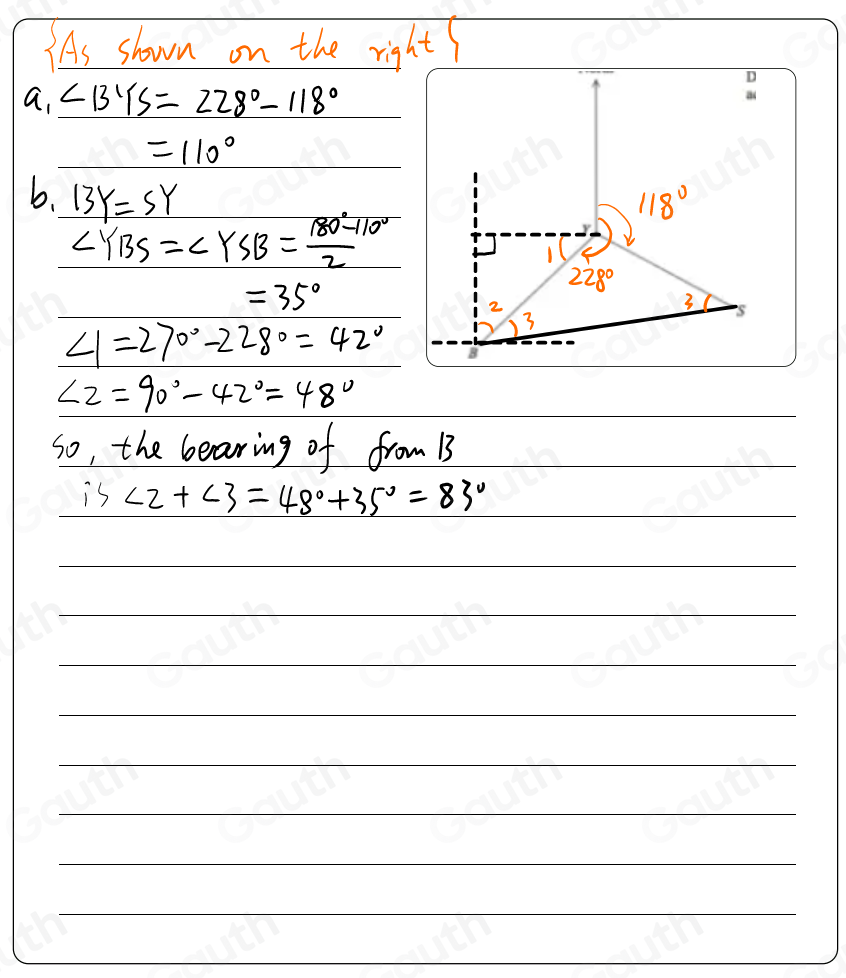 {As shown on the right}
a. ∠BYS = 228° - 118°
= 110°
b. BY = SY
∠YBS = ∠YSB = (180° - 110°)/2
= 35°
∠1 = 270° - 228° = 42°
∠2 = 90° - 42° = 48°
so, the bearing of from B
is ∠2 + ∠3 = 48° + 35° = 83°
D
Y
118°
1
228°
2
3
3
S
B
Gauth